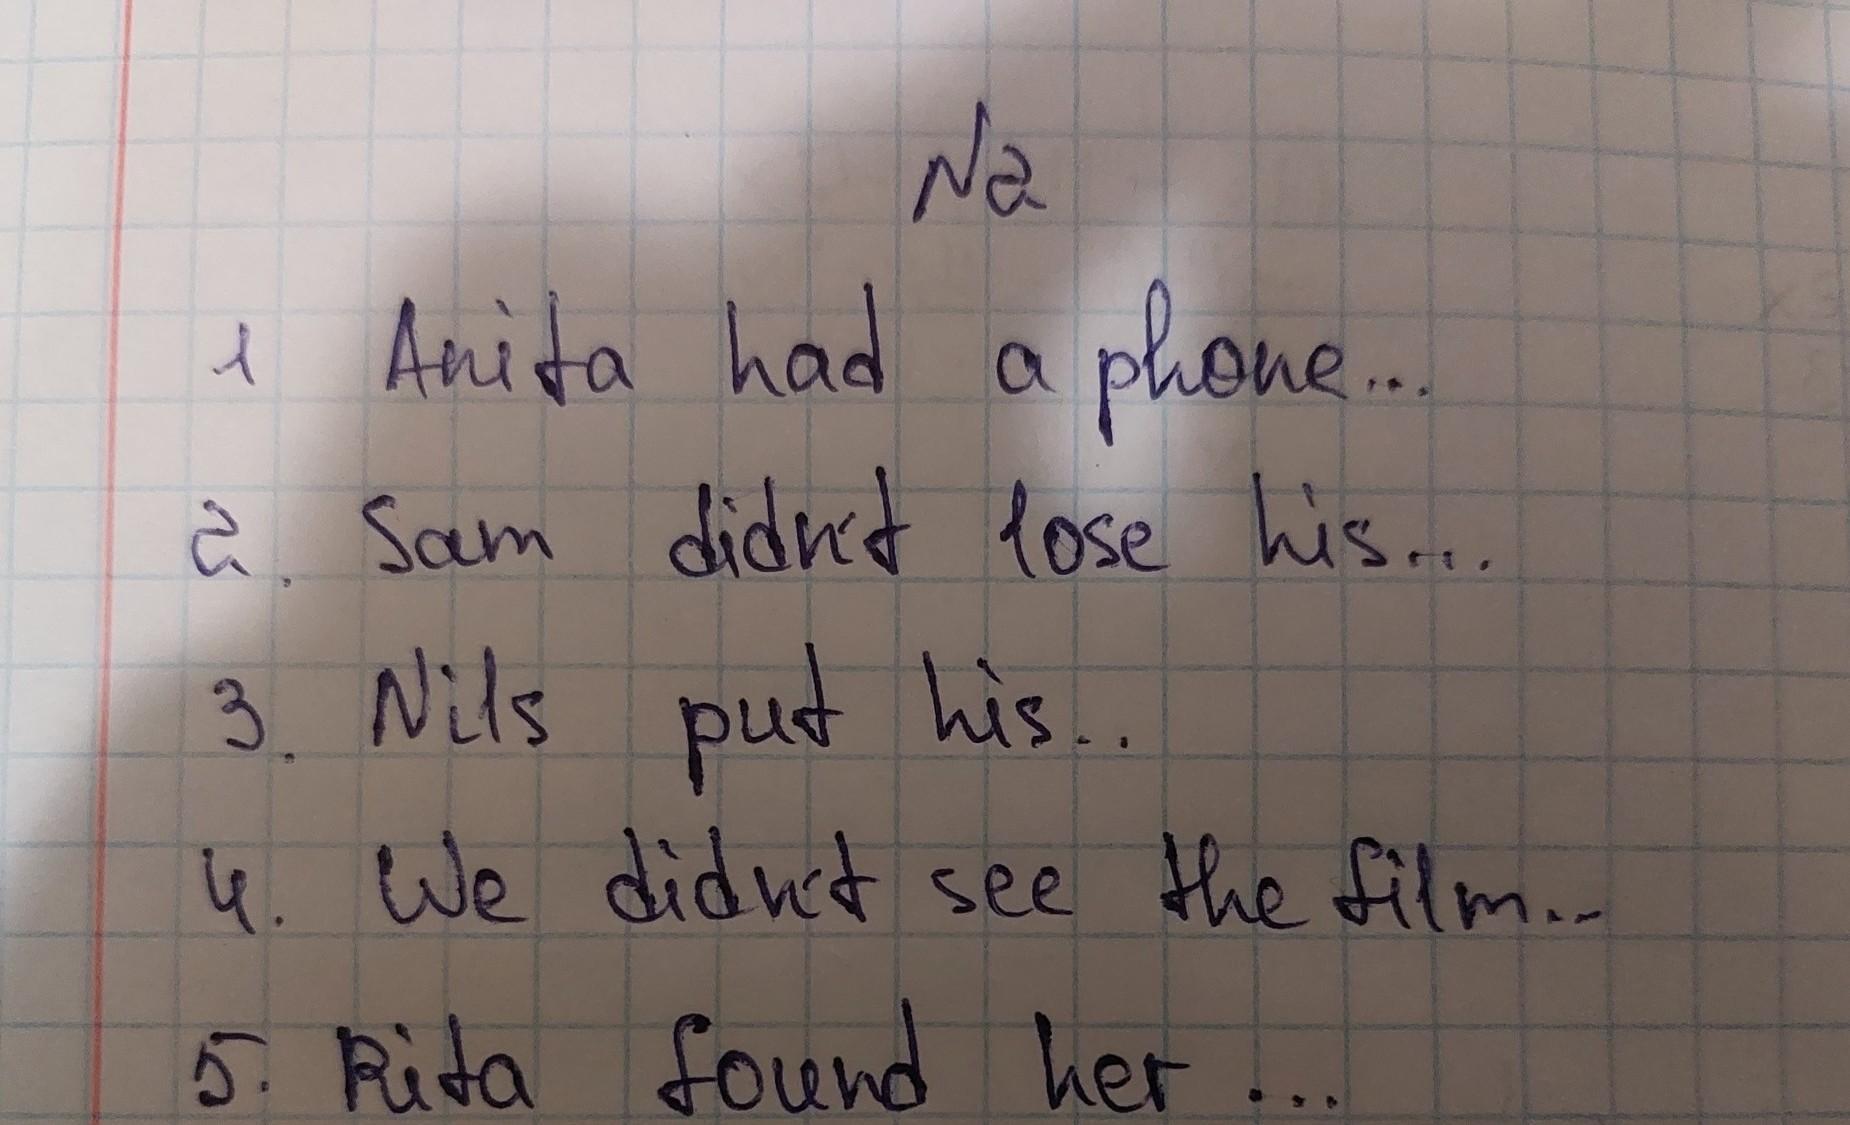 N2
1 Anita had a phone...
2. Sam didn't lose his....
3. Nils put his..
4. We didn't see the film...
5. Rita found her ...